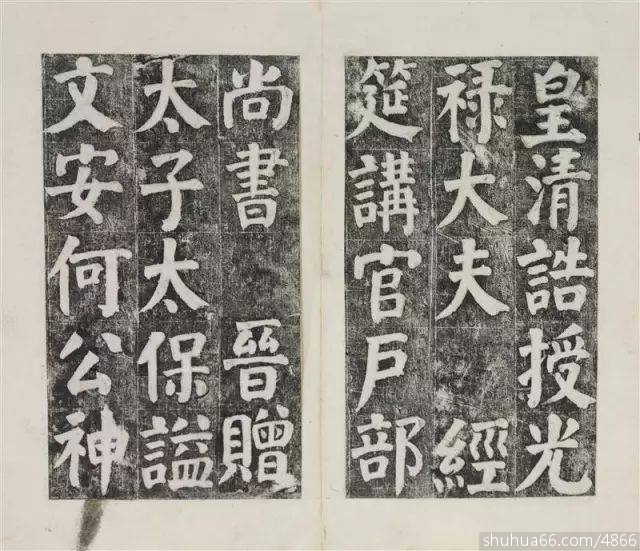 皇清誥授光
禄大夫 經
筵講官戶部
尚書 晉贈
太子太保謚
文安何公神
shuhua66.com/4866